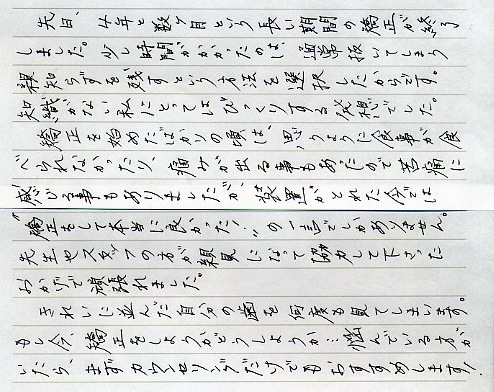 先日、4年と数ヶ月という長い期間の矯正が終了
しました。少し時間がかかったのは、通常抜いてしまう
親知らずを残すという方法を選択したからです。
知識がない私にとってはびっくりする発想でした。
矯正を始めたばかりの頃は、思うように食事が食
べられなかったり、痛みが出る事もあったので苦痛に
感じる事もありましたが、装置がとれた今では
"矯正をして本当に良かった!"の一言でしかありません。
先生やスタッフの方が親身になって協力して下さった
おかげで頑張れました。
きれいに並んだ自分の歯を何度も見てしまいます。
もし今、矯正をしようかどうしようか…悩んでいる方が
いたら、まずカウンセリングだけでもおすすめします!